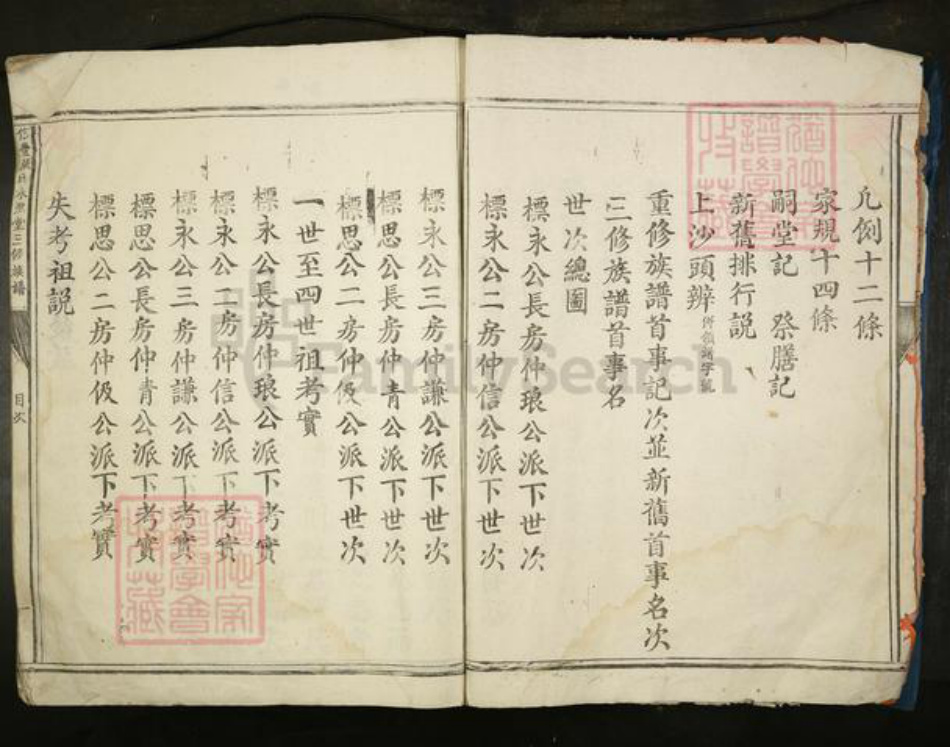 凡例十二條
家規十四條
嗣堂記 祭膳記
新舊排行説
上沙頭辨
重修族譜首事記次並新舊首事名次
三修族譜首事名
世次總圖
標永公長房仲琅公派下世次
標永公二房仲信公派下世次
標永公三房仲謙公派下世次
標思公長房仲青公派下世次
標思公二房仲伋公派下世次
一世至四世祖考實
標永公長房仲琅公派下考實
標永公二房仲信公派下考實
標永公三房仲謙公派下考實
標思公長房仲青公派下考實
標思公二房仲伋公派下考實
失考祖説
三修族譜
目次
FamilySearch